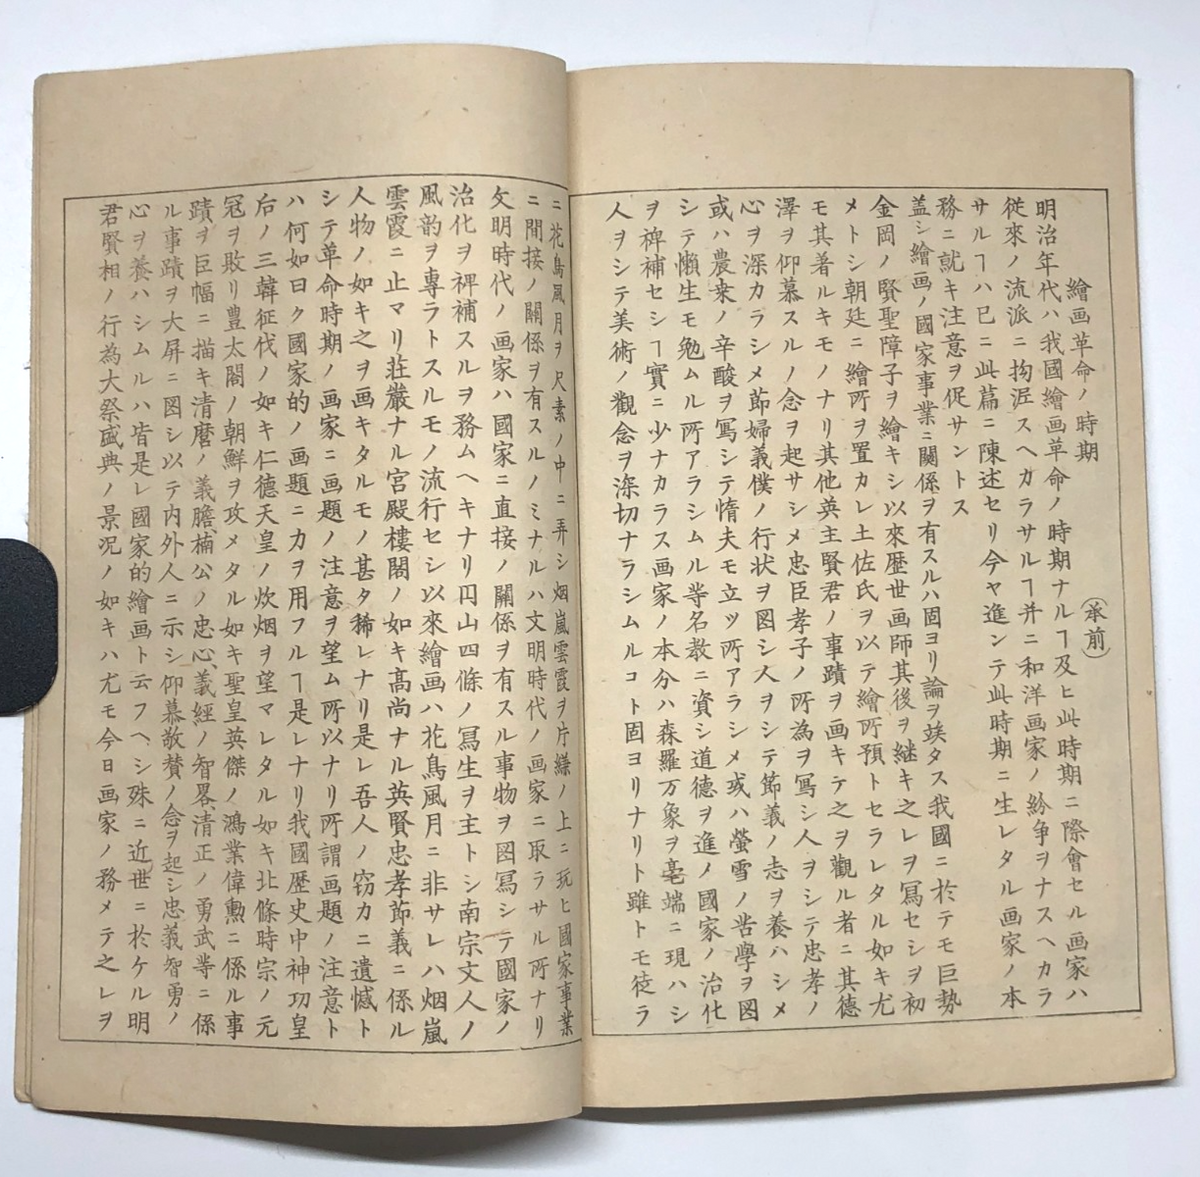 繪画革命ノ時期
(承前)
明治年代ハ我國繪画革命ノ時期ナルヿ及ヒ此時期ニ際會セル画家ハ
従來ノ流派ニ拘泥スヘカラサルヿ并ニ和洋画家ノ紛争ヲナスヘカラ
サルヿハ已ニ此篇ニ陳述セリ今ヤ進ンテ此時期ニ生レタル画家ノ本
務ニ就キ注意ヲ促サントス
盖シ繪画ノ國家事業ニ関係ヲ有スルハ固ヨリ論ヲ竢タス我國ニ於テモ巨勢
金岡ノ賢聖障子ヲ繪キシ以來歴世画師其後ヲ継キ之レヲ寫セシヲ初
メトシ朝廷ニ繪所ヲ置カレ土佐氏ヲ以テ繪所預トセラレタル如キ尤
モ其著ルキモノナリ其他英主賢君ノ事蹟ヲ画キテ之ヲ觀ル者ニ其德
澤ヲ仰慕スルノ念ヲ起サシメ忠臣孝子ノ所為ヲ寫シ人ヲシテ忠孝ノ
心ヲ深カラシメ節婦義僕ノ行状ヲ図シ人ヲシテ節義ノ志ヲ養ハシメ
或ハ農桒ノ辛酸ヲ寫シテ惰夫モ立ツ所アラシメ或ハ螢雪ノ苦學ヲ図
シテ懶生モ勉ムル所アラシムル等名教ニ資シ道德ヲ進メ國家ノ治化
ヲ裨補セシヿ實ニ少ナカラス画家ノ本分ハ森羅万象ヲ毫端ニ現ハシ
人ヲシテ美術ノ觀念ヲ深切ナラシムルコト固ヨリナリト雖トモ徒ラ
ニ花鳥風月ヲ尺素ノ中ニ弄シ烟嵐雲霞ヲ片縑ノ上ニ玩ヒ國家事業
ニ間接ノ關係ヲ有スルノミナルハ文明時代ノ画家ニ取ラサル所ナリ
文明時代ノ画家ハ國家ニ直接ノ關係ヲ有スル事物ヲ図寫シテ國家ノ
治化ヲ裨補スルヲ務ムヘキナリ円山四條ノ寫生ヲ主トシ南宗文人ノ
風韵ヲ専ラトスルモノ流行セシ以來繪画ハ花鳥風月ニ非サレハ烟嵐
雲霞ニ止マリ荘嚴ナル宮殿樓閣ノ如キ髙尚ナル英賢忠孝節義ニ係ル
人物ノ如キ之ヲ画キタルモノ甚タ稀レナリ是レ吾人ノ窃カニ遺憾ト
シテ革命時期ノ画家ニ画題ノ注意ヲ望ム所以ナリ所謂画題ノ注意ト
ハ何如曰ク國家的ノ画題ニ力ヲ用フルヿ是レナリ我國歴史中神功皇
后ノ三韓征伐ノ如キ仁德天皇ノ炊烟ヲ望マレタル如キ北條時宗ノ元
冦ヲ敗リ豊太閤ノ朝鮮ヲ攻メタル如キ聖皇英傑ノ鴻業偉勲ニ係ル事
蹟ヲ巨幅ニ描キ清麿ノ義膽、楠公ノ忠心、義經ノ智畧、清正ノ勇武等ニ係
ル事蹟ヲ大屏ニ図シ以テ内外人ニ示シ仰慕敬賛ノ念ヲ起シ忠義智勇ノ
心ヲ養ハシムルハ皆是レ國家的繪画ト云フヘシ殊ニ近世ニ於ケル明
君賢相ノ行為大祭盛典ノ景况ノ如キハ尤モ今日画家ノ務メテ之レヲ